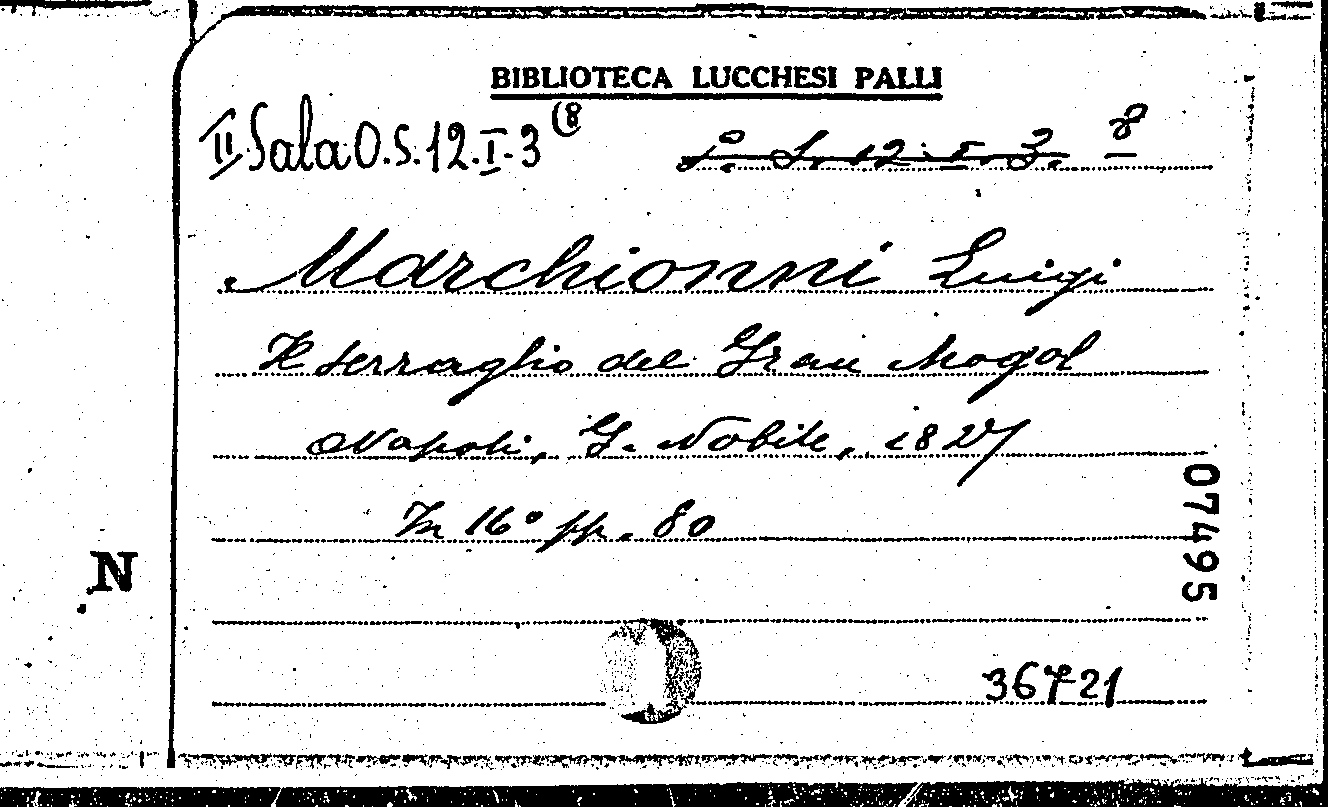 BIBLIOTECA LUCCHESI PALLI
II Sala O.S.12.I.3 (8
S. 12. I. 3. 8
Marchionni Luigi
Il serraglio del Gran Mogol
Napoli, G. Nobile, 1827
In 16° pp. 80
07495
N
36721